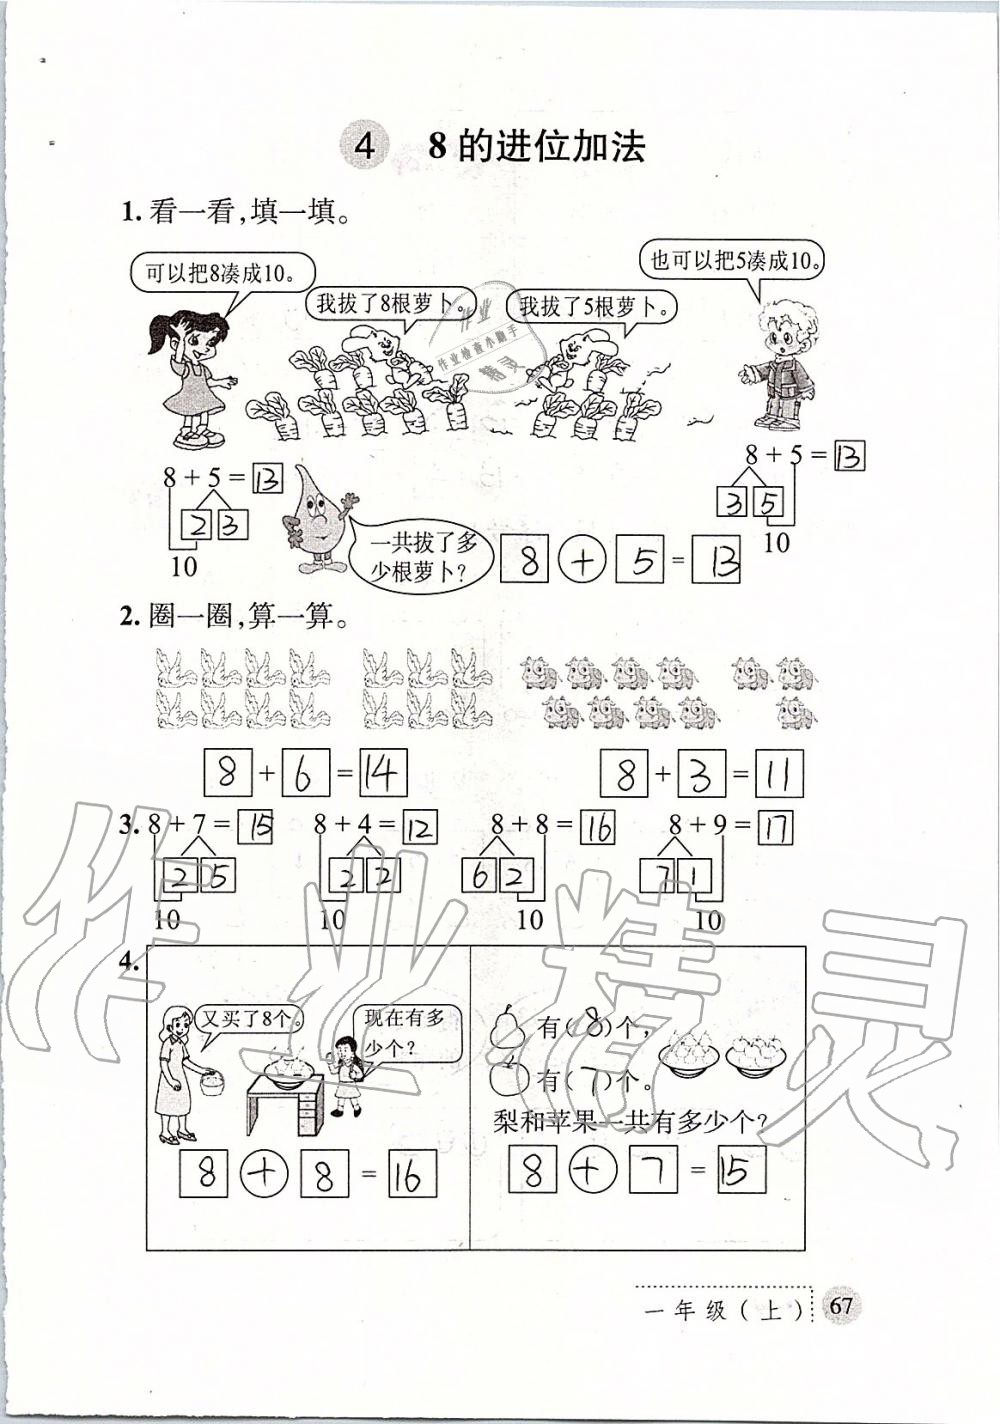 4 8的进位加法
1. 看一看,填一填。
可以把8凑成10。
我拔了8根萝卜。
我拔了5根萝卜。
也可以把5凑成10。
8+5=13
2 3
10
8+5=13
3 5
10
一共拔了多
少根萝卜?
8+5=13
2. 圈一圈,算一算。
8+6=14
8+3=11
3. 8+7=15 8+4=12 8+8=16 8+9=17
2 5 2 2 6 2 7 1
10 10 10 10
4.
又买了8个。
现在有多
少个?
8+8=16
有(8)个,
有(7)个。
梨和苹果一共有多少个?
8+7=15
一年级(上) 67
作业
作业检查小助手
精灵
作业精灵